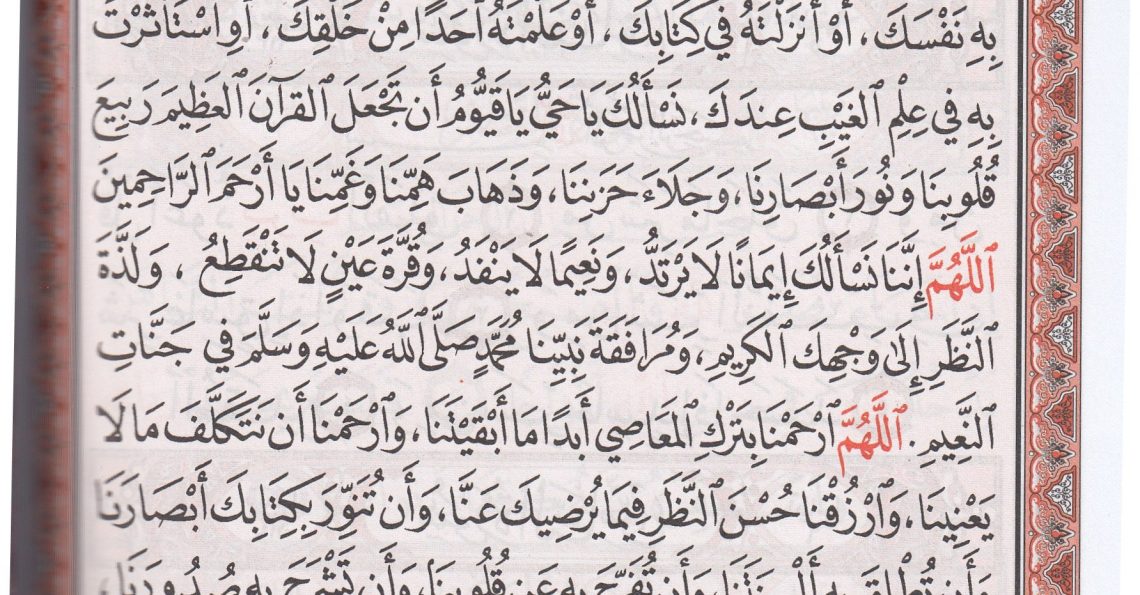 بِهِ نَفْسَكَ ، أَوْ أَنزَلْتَهُ فِي كِتَابِكَ ، أَوْ عَلَّمْتَهُ أَحَدًا مِنْ خَلْقِكَ ، أَوِ اسْتَأْثَرْتَ
بِهِ فِي عِلْمِ ٱلْغَيْبِ عِندَكَ ، نَسْأَلُكَ يَا حَيُّ يَا قَيُّومُ أَن تَجْعَلَ ٱلْقُرْآنَ ٱلْعَظِيمَ رَبِيعَ
قُلُوبِنَا وَنُورَ أَبْصَارِنَا ، وَجَلَاءَ حَزَنِنَا ، وَذَهَابَ هَمِّنَا وَغَمِّنَا يَا أَرْحَمَ ٱلرَّاحِمِينَ
ٱللَّهُمَّ إِنَّنَا نَسْأَلُكَ إِيمَانًا لَا يَرْتَدُّ ، وَنَعِيمًا لَا يَنْفَدُ ، وَقُرَّةَ عَيْنٍ لَا تَنْقَطِعُ ، وَلَذَّةَ
ٱلنَّظَرِ إِلَىٰ وَجْهِكَ ٱلْكَرِيمِ ، وَمُرَافَقَةَ نَبِيِّنَا مُحَمَّدٍ صَلَّى ٱللَّهُ عَلَيْهِ وَسَلَّمَ فِي جَنَّاتِ
ٱلنَّعِيمِ . ٱللَّهُمَّ ٱرْحَمْنَا بِتَرْكِ ٱلْمَعَاصِي أَبَدًا مَا أَبْقَيْتَنَا ، وَٱرْحَمْنَا أَن نَتَكَلَّفَ مَا لَا
يَعْنِينَا ، وَٱرْزُقْنَا حُسْنَ ٱلنَّظَرِ فِيمَا يُرْضِيكَ عَنَّا ، وَأَن تُنَوِّرَ بِكِتَابِكَ أَبْصَارَنَا
وَأَن تُطْلِقَ بِهِ أَلْسِنَتَنَا وَأَن تُفَرِّجَ بِهِ عَن قُلُوبِنَا ، وَأَن تَشْرَحَ بِهِ صُدُورَنَا ،